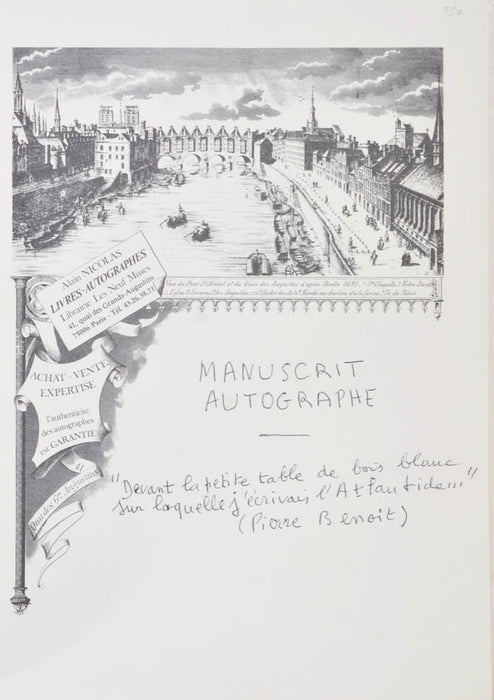 750
Vue du Pont St Michel et du Quai des Augustins d'apres
Alain NICOLAS
LIVRES - AUTOGRAPHES
Librairie Les Neuf Muses
41, quai des Grands-Augustins
75006 Paris - Tél. 43.26.38.71
ACHAT - VENTE
EXPERTISE
l'authenticité
des autographes
est GARANTIE
41
Quai des Gds Augustins
MANUSCRIT
AUTOGRAPHE
"Devant la petite table de bois blanc
sur laquelle j'écrivais l'Atlantide..."
(Pierre Benoit)